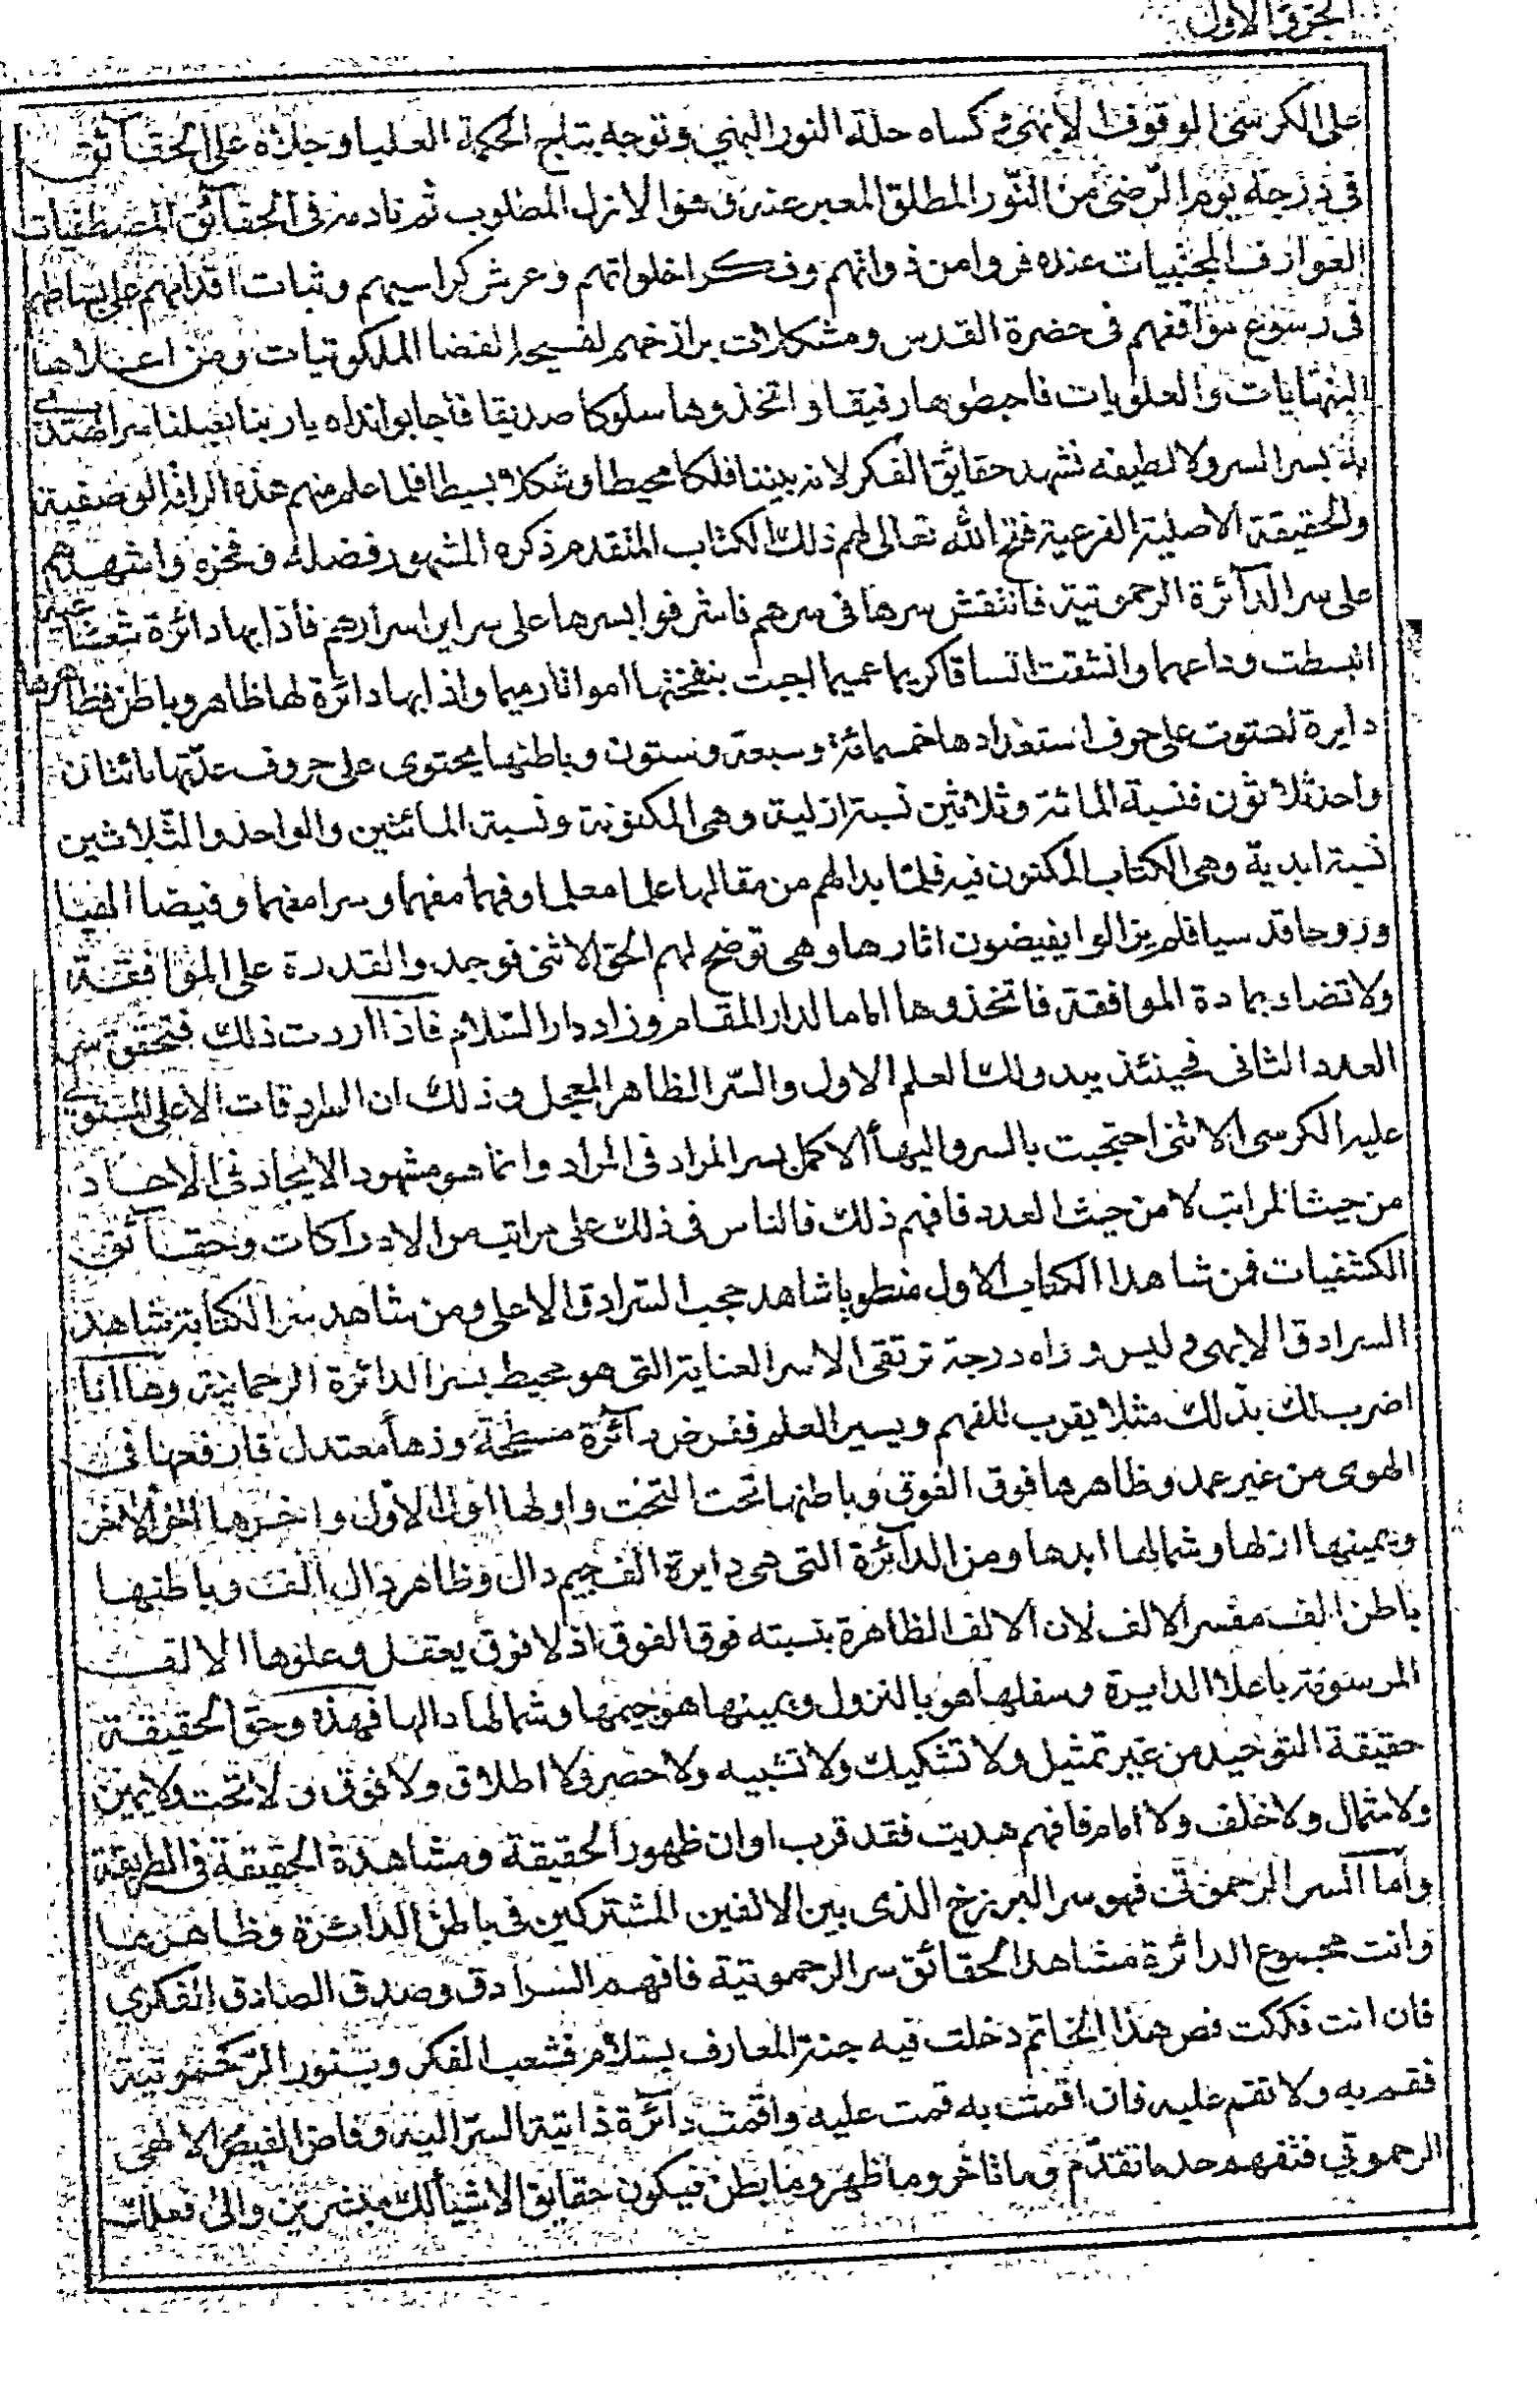 الجزء الاول
على الكرسى الوقوف الابهى ثم كساه حلة النور البهى وتوجه بتاج الحكمة العليا وجلاه على الحقائق
فى درجة يوم الرضى من النور المطلق المعبر عنه فى شو الازل المطلوب ثم ناد منه فى الحقائق المصطفيات
العوارف المجتبيات عنده فروا من ذواتهم وفكر اخلواتهم وعرش كراسيهم وثبات اقدامهم على بساطهم
فى رسوخ مواقفهم فى حضرة القدس ومشكلات برازخهم لفسيح الفضا الملكوتيات ومن اعتلاها
النهايات والعلويات فاحبطوها رفيقا واتخذوها سلوكا صديقا فاجابوا نداه يا ربنا نعم لنا سرا
بسر السر ولا لطيفه نشهد حقايق الفكر لانه بيننا فلكا محيطا وشكلا بسيطا فلما علم منهم هذه الرافة الوصفية
والحقيقة الاصلية الفرعية فتح الله تعالى لهم ذلك الكتاب المتقدم ذكره المشهور فضله وفخره واشهدهم
على سر الدآئرة الرحموتية فانتقش سرها فى سرهم فاشرفوا بسرها على سراير اسرارهم فاذا بها دائرة شعشا
انبسطت وداعها وانشقت اتساقا كريما عميما اجبت بنفختها امواتا رميما واذا بها دائرة لها ظاهر وباطن فظاهرها
دايرة احتوت على حروف استعدادها خمسمائة وسبعة وستون وباطنها يحتوى على حروف عدتها مائتان
واحد ثلاثون فنسبة المائة وثلاثين نسبة ازلية وهى المكنونة ونسبة المائتين والواحد والثلاثين
نسبة ابدية وهى الكتاب المكنون فيه فلما بدا لهم من مقالها علما معلما وفهما مفهما وسرا مفهما وفيضا الفيا
وروحا قد سيا فلم يزالوا يفيضون اثارها وهى توضح لهم الحق الاثنى فوجد والقدرة على الموافقة
ولا تضاد بمادة الموافقة فاتخذوها اماما لدار المقام وزاد دار السلام فاذا اردت ذلك فتحقق سر
العدد الثانى فحينئذ يبدو لك العلم الاول والسر الظاهر المعجل وذلك ان السرادقات الاعلى المستوى
عليه الكرسى الاثنى احتجبت بالسر والبهاء الاكمل بسر المراد فى المراد وانما هو مشهود الايجاد فى الاحاد
من حيث المراتب لا من حيث العدد فافهم ذلك فالناس فى ذلك على مراتب من الادراكات وحقائق
الكشفيات فمن شاهد الكتاب الاول منطويا شاهد حجب السرادق الاعلى ومن شاهد سر الكتابة شاهد
السرادق الابهى وليس وراه درجة ترتقى الا سر العناية التى هو محيط بسر الدائرة الرحمانية وها انا
اضرب لك بذلك مثلا يقرب للفهم ويسير العلم ففرض دآئرة مسطحة وزها معتدل فارفعها فى
الهوى من غير عمد وظاهرها فوق الفوق وباطنها تحت التحت واولها اول الاول واخرها اخر الآخر
ويمينها ازلها وشمالها ابدها ومن الدآئرة التى هى دايرة الف جيم دال وظاهر دال الف وباطنها
باطن الف مفسر الالف لان الالف الظاهرة بنسبته فوق الفوق اذ لا فوق يعقل وعلوها الالف
المرسومة باعلا الدايرة وسفلها هو بالنزول ويمينها هو جيمها وشمالها دالها فهذه وحق الحقيقة
حقيقة التوحيد من غير تمثيل ولا تشكيك ولا تشبيه ولا حصر ولا اطلاق ولا فوق ولا تحت ولا يمين
ولا شمال ولا خلف ولا امام فافهم هديت فقد قرب اوان ظهور الحقيقة ومشاهدة الحقيقة فى الطريقة
واما السر الرحموتى فهو سر البرزخ الذى بين الالفين المشتركين فى باطن الدائرة وظاهرها
وانت مجموع الدائرة مشاهد الحقائق سر الرحموتية فافهم السرادق وصدق الصادق الفكرى
فان انت فككت فص هذا الخاتم دخلت فيه جنة المعارف بسلام فشعب الفكر وبسنور الرحموتية
فقم به ولا تقم عليه فان اقمت به قمت عليه واقمت دآئرة ذاتية السر اليه وفاض الفيض الالهى
الرحموتى فتفهم حد ما تقدم وما تاخر وما ظهر وما بطن فيكون حقايق الاشيا لك مبشرين والى فعلك